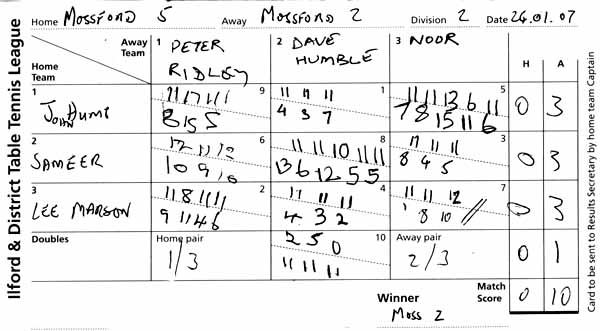 Ilford & District Table Tennis League
Home MOSSFORD 5 Away MOSSFORD 2 Division 2 Date 26.01.07
Away Team 1 PETER RIDLEY 2 DAVE HUMBLE 3 NOOR H A
Home Team
1 JOHN 9 1 5
11 11 11
4 3 7
11 11 13 6 11
7 8 15 11 6
0 3
2 SAMEER 6 8 3
11 11 10 11 11
13 6 12 5 5
11 11 11
8 4 5
0 3
3 LEE MARSON 2 4 7
11 8 11 11
9 11 4 6
11 11 11
4 3 2
11 11 12
8 10
0 3
Doubles Home pair 10 Away pair
1/3
2 5 0
11 11 11
2/3
0 1
Winner Moss 2 Match Score 0 10
Card to be sent to Results Secretary by home team Captain